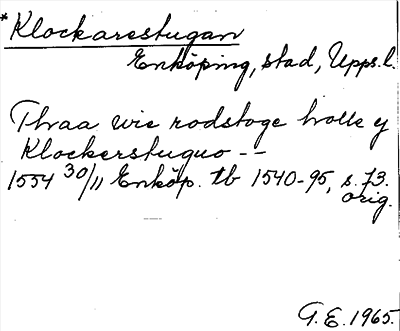 *Klockarestugan
Enköping, stad, Upps.l.
Thraa wie rodstoge holle y
Klockerstuguo --
1554 30/11 Enköp. tb 1540-95, s. 73.
orig.
G.E. 1965.